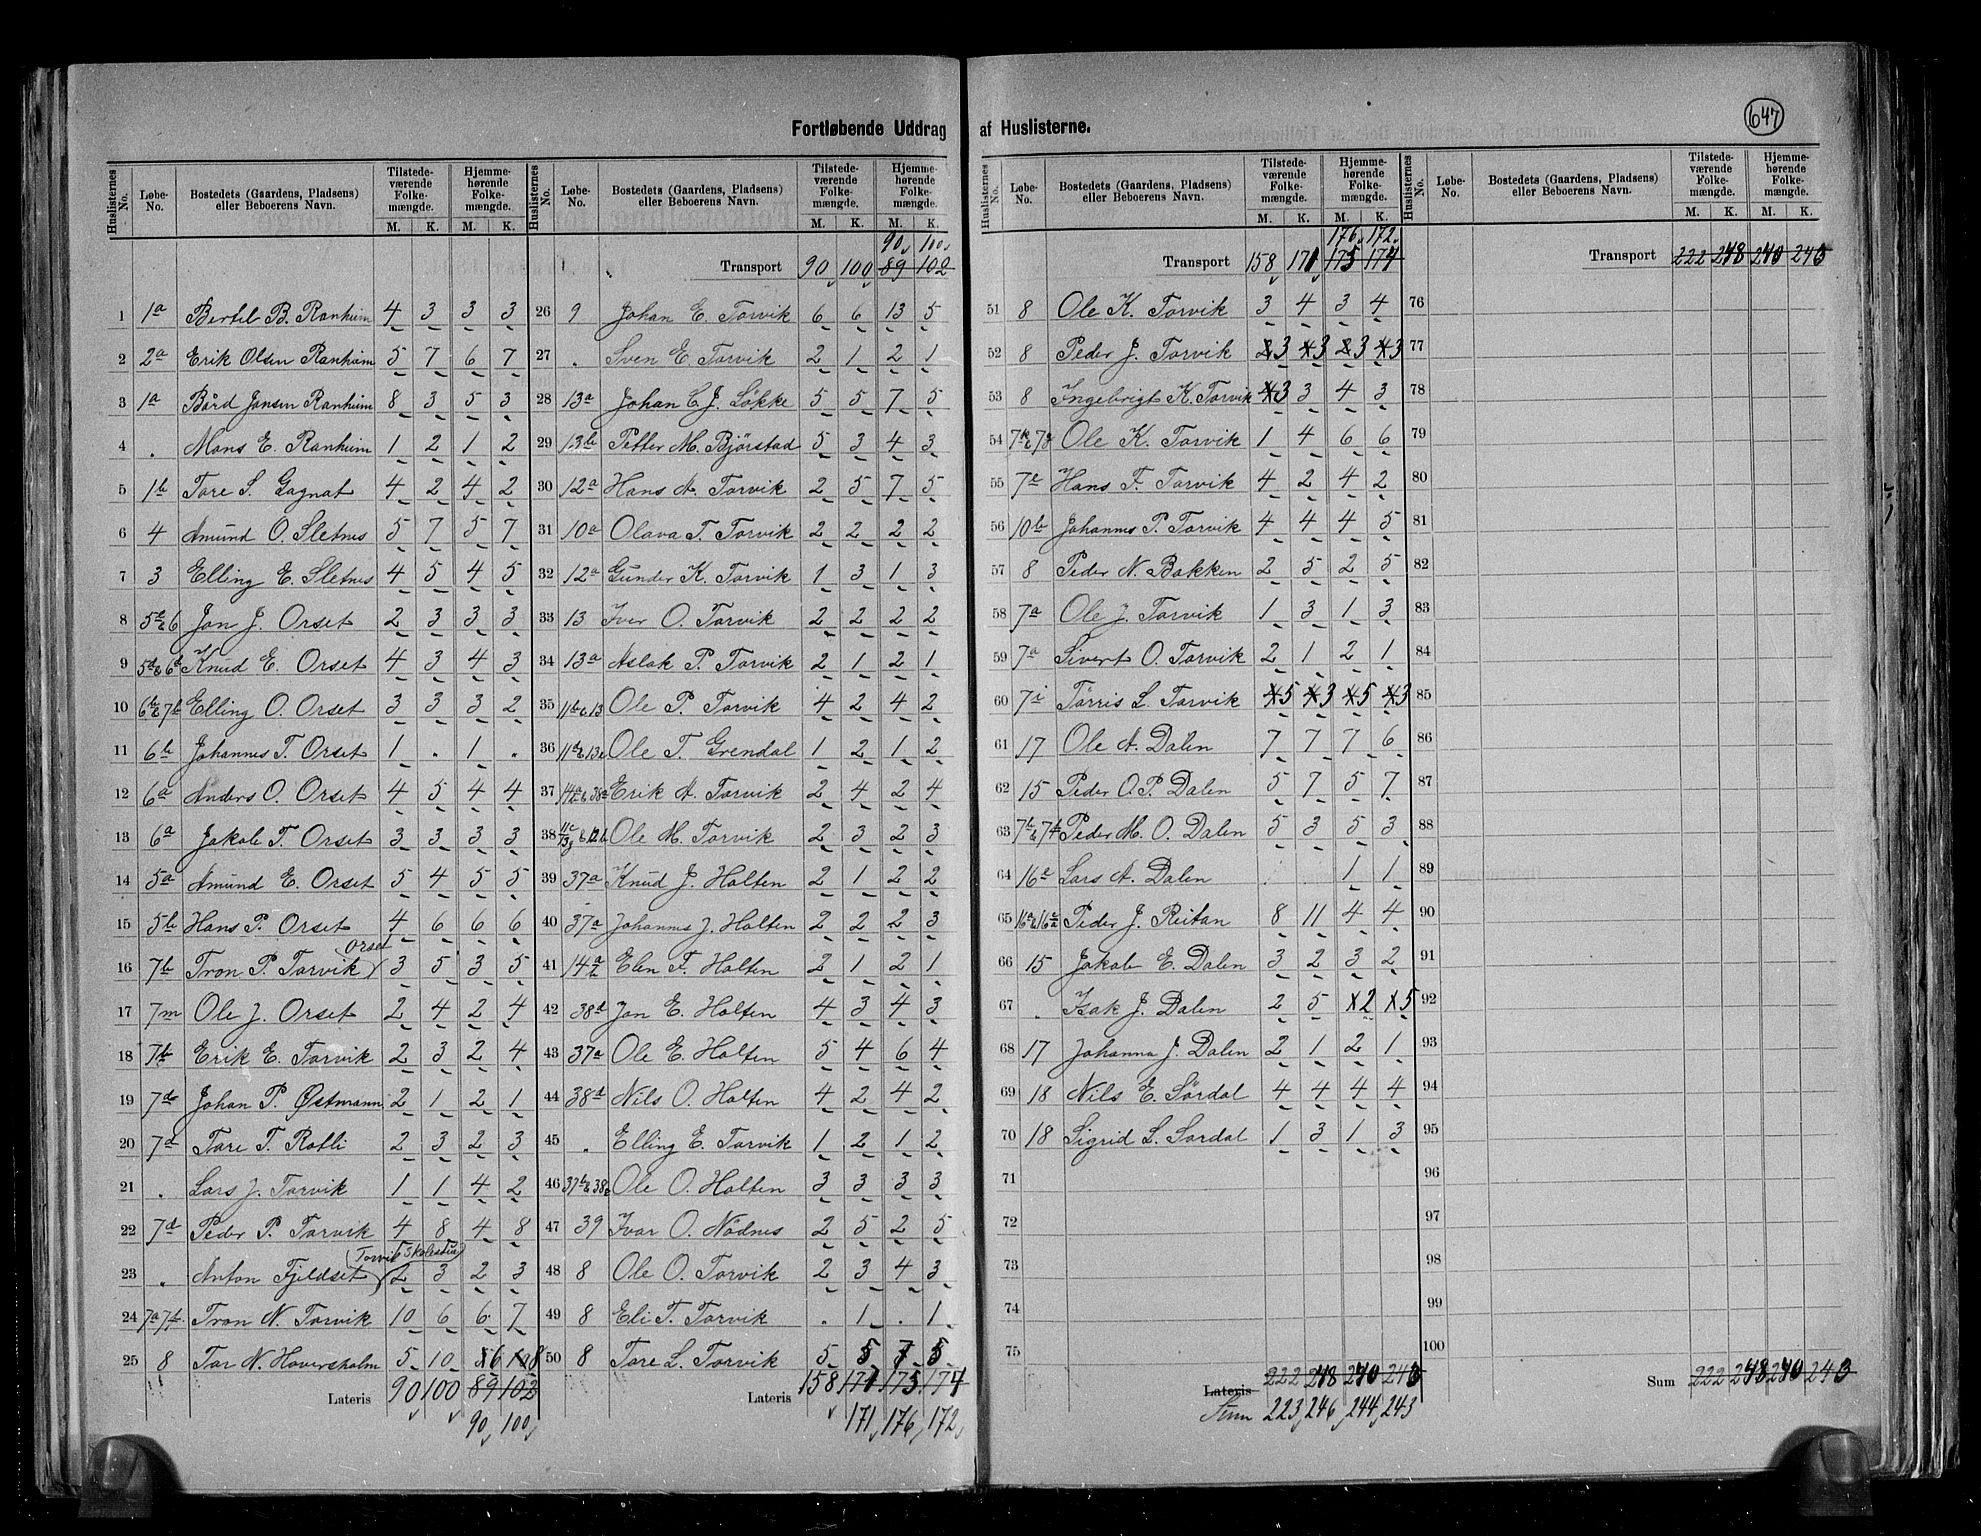 647
Fortløbende Uddrag af Huslisterne.
Huslisternes No. | Løbe-No. | Bostedets (Gaardens, Pladsens) eller Beboerens Navn. | Tilstedeværende Folkemængde. M. K. | Hjemmehørende Folkemængde. M. K.
1 1a Bertel B. Ranheim 4 3 3 3
2 2a Erik Olsen Ranheim 5 7 6 7
3 1a Bård Jonsen Ranheim 8 3 5 3
4 . Mons E. Ranheim 1 2 1 2
5 1b Tore S. Gagnat 4 2 4 2
6 4 Amund O. Sletnes 5 7 5 7
7 3 Elling E. Sletnes 4 5 4 5
8 Jon J. Orset 2 3 3 3
9 Knud E. Orset 4 3 4 3
10 6b&7b Elling O. Orset 3 3 3 2
11 6b Johannes T. Orset 1 . 1 .
12 6a Anders O. Orset 4 5 4 4
13 6a Jakob T. Orset 3 3 3 3
14 5a Amund E. Orset 5 4 5 5
15 5b Hans P. Orset 4 6 6 6
Orset
16 7b Tron P. Torvik 3 5 3 5
17 7m Ole J. Orset 2 4 2 4
18 7b Erik E. Torvik 2 3 2 4
19 7d Johan P. Østmann 2 1 2 1
20 7d Tore T. Rotli 2 3 2 3
21 . Lars J. Torvik 1 1 4 2
22 7d Peder P. Torvik 4 8 4 8
(Torvik Skolestue)
23 . Anton Fjeldset 2 3 2 3
24 7a 7f Tron N. Torvik 10 6 6 7
25 8 Tor N. Haversholm 5 10 6 8
Lateris 90 100 89 102
90 100
90 100
Transport 90 100 89 102
26 9 Johan E. Torvik 6 6 13 5
27 . Sven E. Torvik 2 1 2 1
28 13a Johan C. J. Løkke 5 5 7 5
29 13b Petter M. Bjørstad 5 3 4 3
30 12a Hans A. Torvik 2 5 7 5
31 10a Olava T. Torvik 2 2 2 2
32 12a Gunder K. Torvik 1 3 1 3
33 13 Iver O. Torvik 2 2 2 2
34 13a Aslak P. Torvik 2 1 2 1
35 11b&13 Ole P. Torvik 4 2 4 2
36 Ole T. Grendal 1 2 1 2
37 Erik A. Torvik 2 4 2 4
38 Ole M. Torvik 2 3 2 3
39 37a Knud J. Holten 2 1 2 2
40 37a Johannes J. Holten 2 2 2 3
41 14a Elen T. Holten 2 1 2 1
42 38d Jon E. Holten 4 3 4 3
43 37a Ole E. Holten 5 4 6 4
44 38a Nils O. Holten 4 2 4 2
45 . Elling E. Torvik 1 2 1 2
46 Ole O. Holten 3 3 3 3
47 39 Ivar O. Nødnes 2 5 2 5
48 8 Ole O. Torvik 2 3 4 3
49 8 Eli T. Torvik . 1 . 1
50 8 Tore L. Torvik 5 5 7 5
Lateris 158 171 175 174
171 176 172
Huslisternes No. | Løbe-No. | Bostedets (Gaardens, Pladsens) eller Beboerens Navn. | Tilstedeværende Folkemængde. M. K. | Hjemmehørende Folkemængde. M. K.
176 172
Transport 158 171 175 174
51 8 Ole K. Torvik 3 4 3 4
52 8 Peder J. Torvik 3 3 3 3
53 8 Ingebrigt K. Torvik 3 3 4 3
54 Ole K. Torvik 1 4 6 6
55 7e Hans T. Torvik 4 2 4 2
56 10b Johannes P. Torvik 4 4 4 5
57 8 Peder N. Bakken 2 5 2 5
58 7a Ole J. Torvik 1 3 1 3
59 7a Sivert O. Torvik 2 1 2 1
60 7i Tørris L. Torvik 5 3 5 3
61 17 Ole A. Dalen 7 7 7 6
62 15 Peder O. P. Dalen 5 7 5 7
63 Peder M. O. Dalen 5 3 5 3
64 16e Lars A. Dalen . . 1 1
65 Peder J. Reitan 8 11 4 4
66 15 Jakob E. Dalen 3 2 3 2
67 . Isak J. Dalen 2 5 2 5
68 17 Johanna J. Dalen 2 1 2 1
69 18 Nils E. Sørdal 4 4 4 4
70 18 Sigrid L. Sørdal 1 3 1 3
71
72
73
74
75
Lateris 222 248 240 243
Sum 223 246 244 243
Transport 222 248 240 243
76
77
78
79
80
81
82
83
84
85
86
87
88
89
90
91
92
93
94
95
96
97
98
99
100
Sum 222 248 240 243